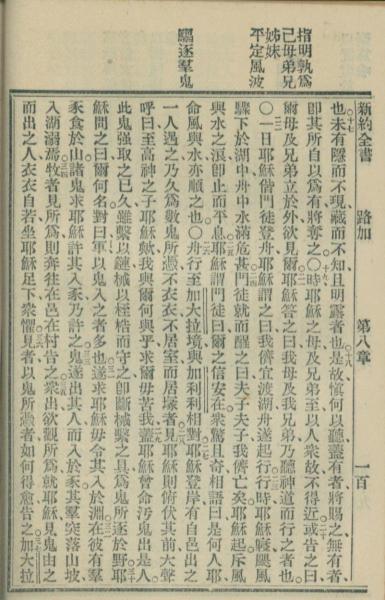 指明孰爲
己母弟兄
姊妹
平定風波
驅逐羣鬼
新約全書　路加　第八章　一百
也未有隱而不現藏而不知且明露者也是故愼何以聽蓋有者將賜之無有者
卽其所自以爲有將奪之○時耶穌之母及兄弟至以人衆故不得近或告之曰
爾母及兄弟立於外欲見爾耶穌答之曰我母及我兄弟乃聽神道而行之者也
○一日耶穌偕門徒登舟耶穌謂之曰我儕宜渡湖舟遂起行行時耶穌寢颶風
驟下於湖中舟中水滿危甚門徒就而醒之曰夫子夫子我儕亡矣耶穌起斥風
與水之浪卽止而平息耶穌謂門徒曰爾之信安在衆驚且奇相語曰是何人耶
命風與水亦順之也○舟行至加大拉境與加利利相對耶穌登岸有自邑出之
一人遇之乃久爲數鬼所憑不衣衣不居室而居塚者見耶穌則俯伏其前大聲
呼曰至高神之子耶穌歟我與爾何與乎求爾毋苦我蓋耶穌曾命汚鬼出是人
此鬼强取之已久雖繫以鏈械以桎梏而守之卽斷械繫之具爲鬼所逐於野耶
穌問之曰爾名何對曰軍以鬼入之者多也遂求耶穌毋令其入於淵在彼有羣
豕食於山諸鬼求耶穌許其入豕乃許之鬼遂出其人而入於豕其羣突落山坡
入湖溺焉牧者見所爲則奔往在邑在村告之衆出欲觀所爲就耶穌見鬼由之
而出之人衣衣自若坐耶穌足下衆懼見者以鬼所憑者如何得愈告之加大拉